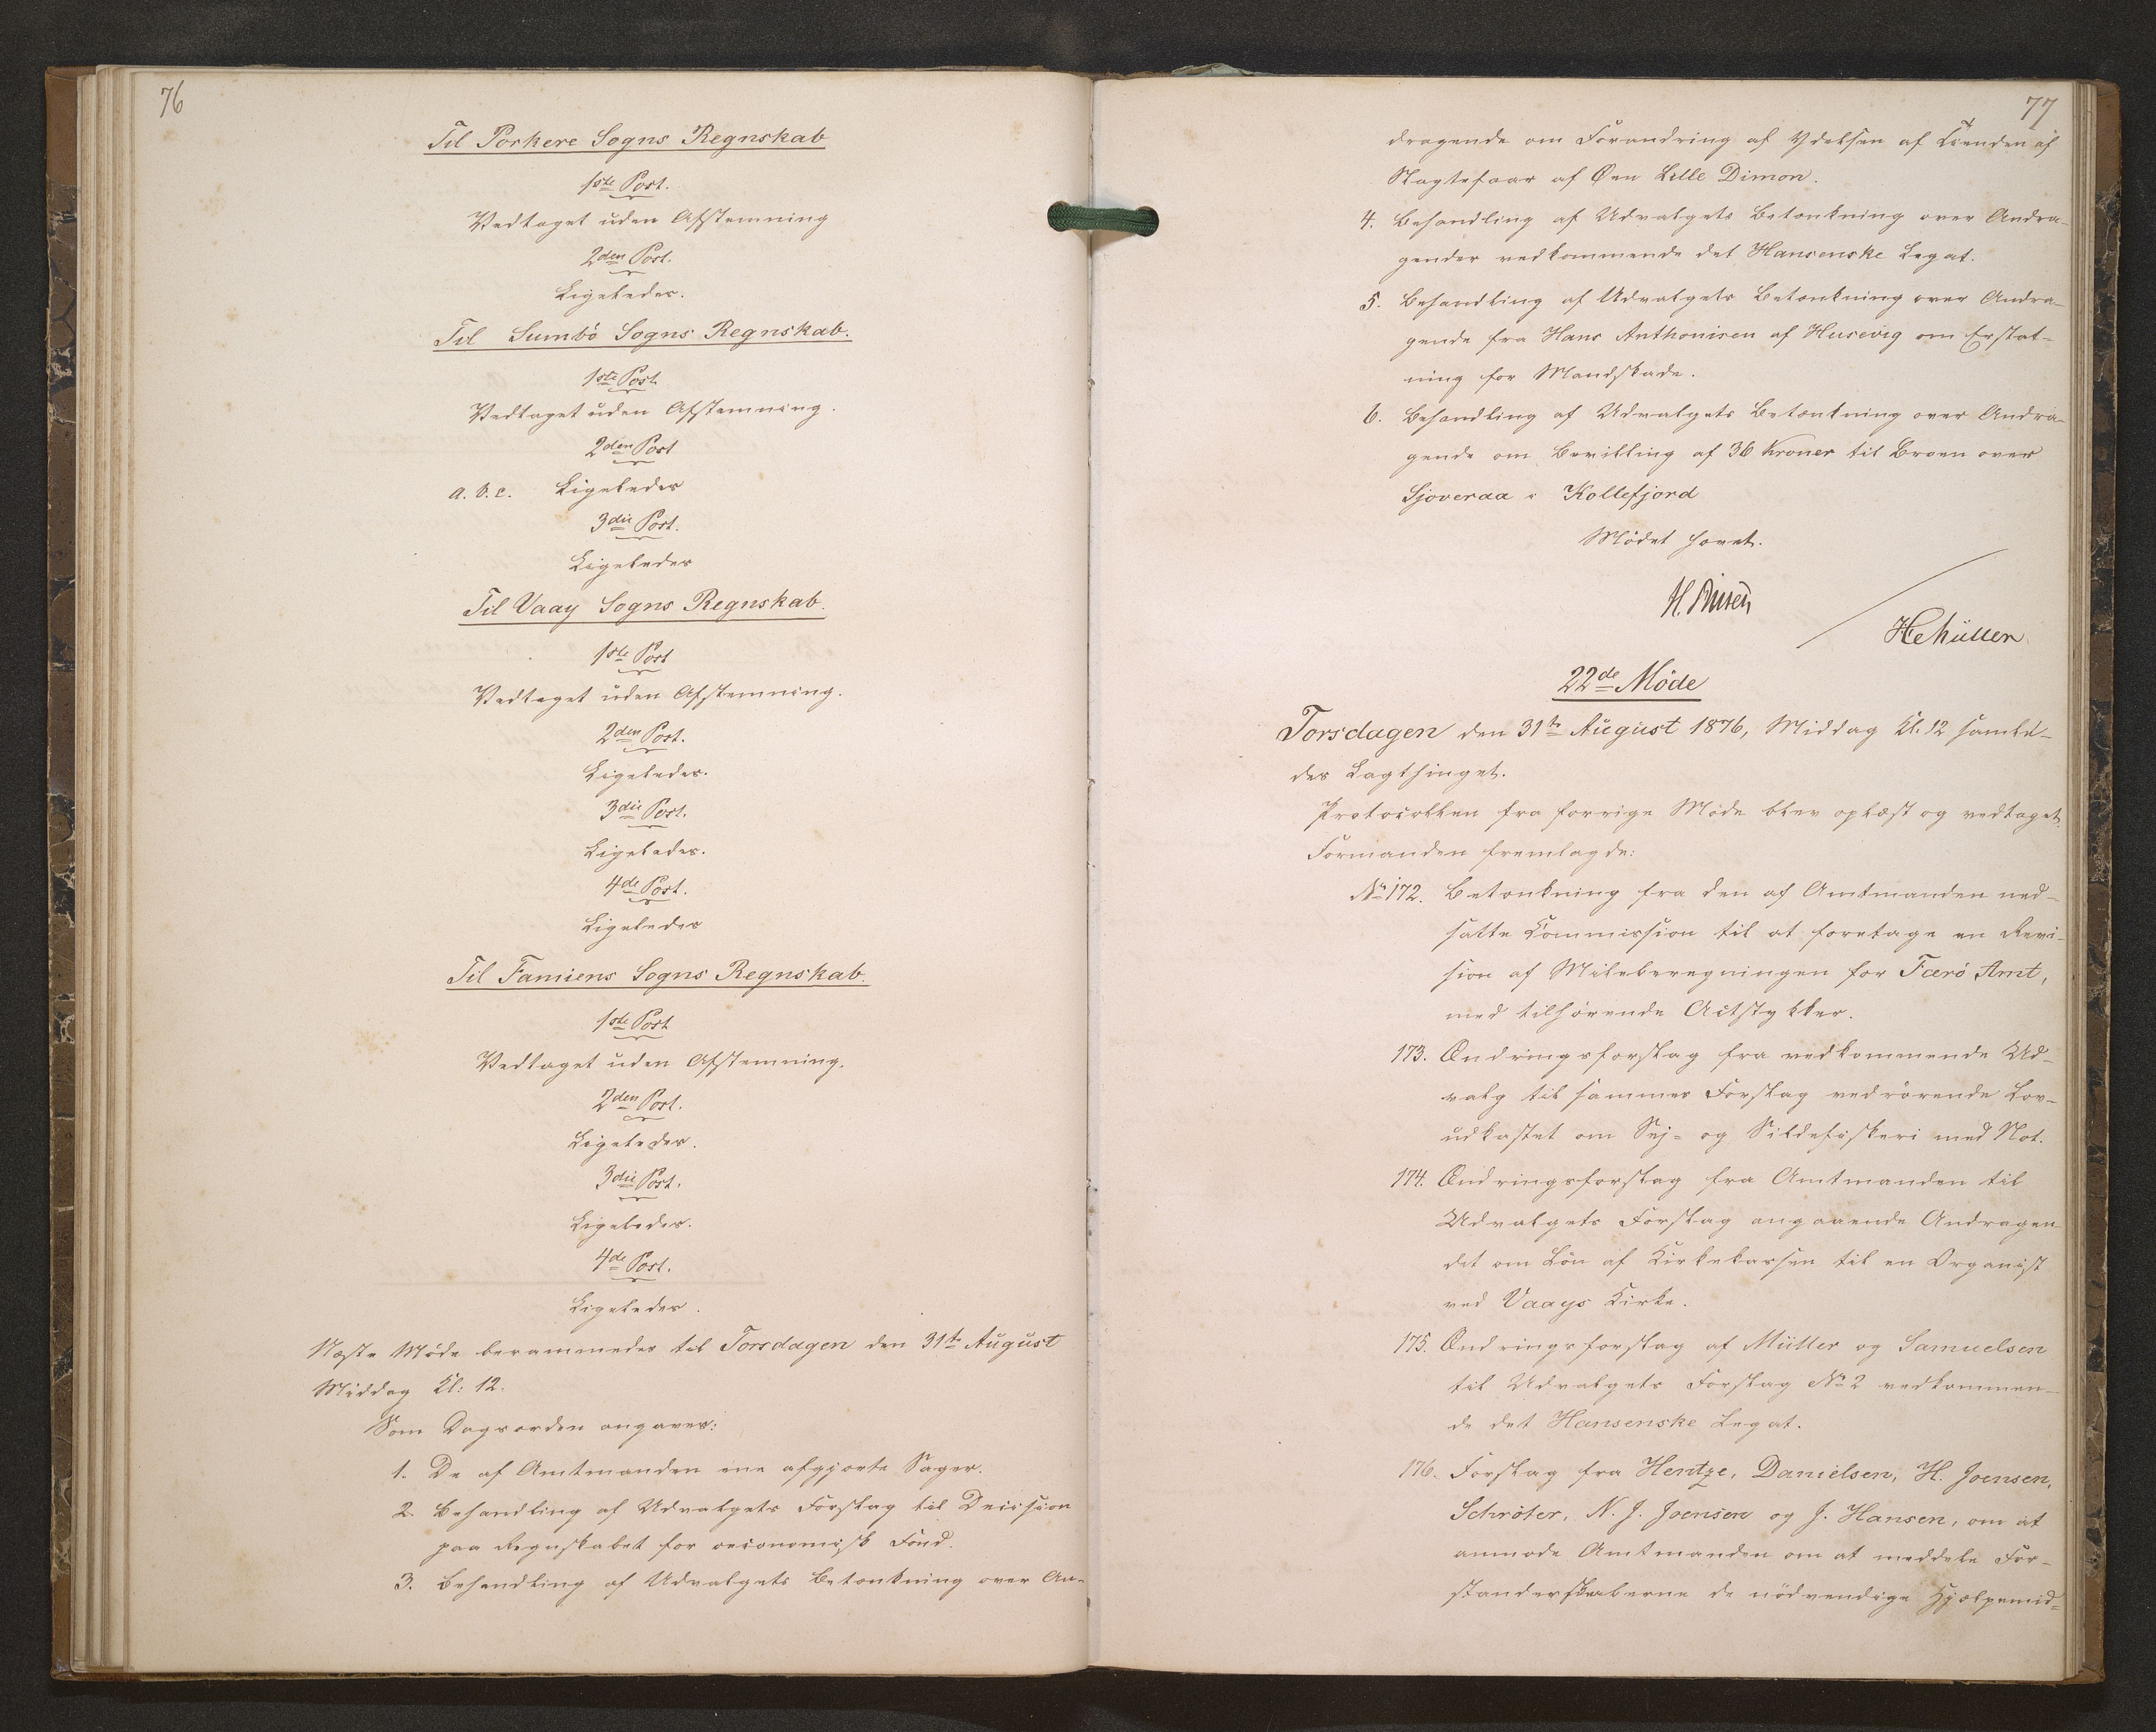 76
Til Porkere Sogns Regnskab
1ste Post.
Vedtaget uden Afstemning
2den Post.
Ligeledes.
Til Sumbø Sogns Regnskab.
1ste Post.
Vedtaget uden Afstemning.
2den Post
a. b. c. Ligeledes
3die Post.
Ligeledes
Til Vaay Sogns Regnskab.
1ste Post
Vedtaget uden Afstemning.
2den Post.
Ligeledes.
3die Post.
Ligeledes.
4de Post.
Ligeledes
Til Famiens Sogns Regnskab.
1ste Post
Vedtaget uden Afstemning.
2den Post.
Ligeledes.
3die Post.
Ligeledes.
4de Post.
Ligeledes.
Næste Møde berammedes til Torsdagen den 31te August
Middag Kl: 12.
Som Dagsorden angaves:
1. De af Amtmanden ene afgjorte Sager.
2. Behandling af Udvalgets Forslag til Decision
paa Regnskabet for oeconomisk Fond.
3. Behandling af Udvalgets Betænkning over An-
77
dragende om Forandring af Ydelsen af Tienden af
Slagtefaar af Øen Lille Dimon.
4. Behandling af Udvalgets Betænkning over Andra-
gender vedkommende det Hansenske Legat.
5. Behandling af Udvalgets Betænkning over Andra-
gende fra Hans Anthonisen af Husevig om Erstat-
ning for Mandskade.
6. Behandling af Udvalgets Betænkning over Andra-
gende om Bevilling af 36 Kroner til Broen over
Sjoveraa i Kollefjord
Mødet hævet.
22de Møde
Torsdagen den 31te August 1876, Middag Kl. 12 samle-
des Lagthinget.
Protocollen fra forrige Møde blev oplæst og vedtaget.
Formanden fremlagde:
No 172. Betænkning fra den af Amtmanden ned-
satte Commission til at foretage en Revi-
sion af Mileberegningen for Færø Amt,
med tilhørende Actstykker.
173. Ændringsforslag fra vedkommende Ud-
valg til sammes Forslag vedrørende Lov-
udkastet om Sej- og Sildefiskeri med Not.
174. Ændringsforslag fra Amtmanden til
Udvalgets Forslag angaaende Andragen-
det om Løn af Kirkekassen til en Organist
ved Vaays Kirke.
175. Ændringsforslag af Müller og Samuelsen
til Udvalgets Forslag No 2 vedkommen-
de det Hansenske Legat.
176. Forslag fra Hentze, Danielsen, H. Joensen,
Schrøter, N. J. Joensen og J. Hansen, om at
anmode Amtmanden om at meddele For-
standerskaberne de nødvendige Hjælpemid-